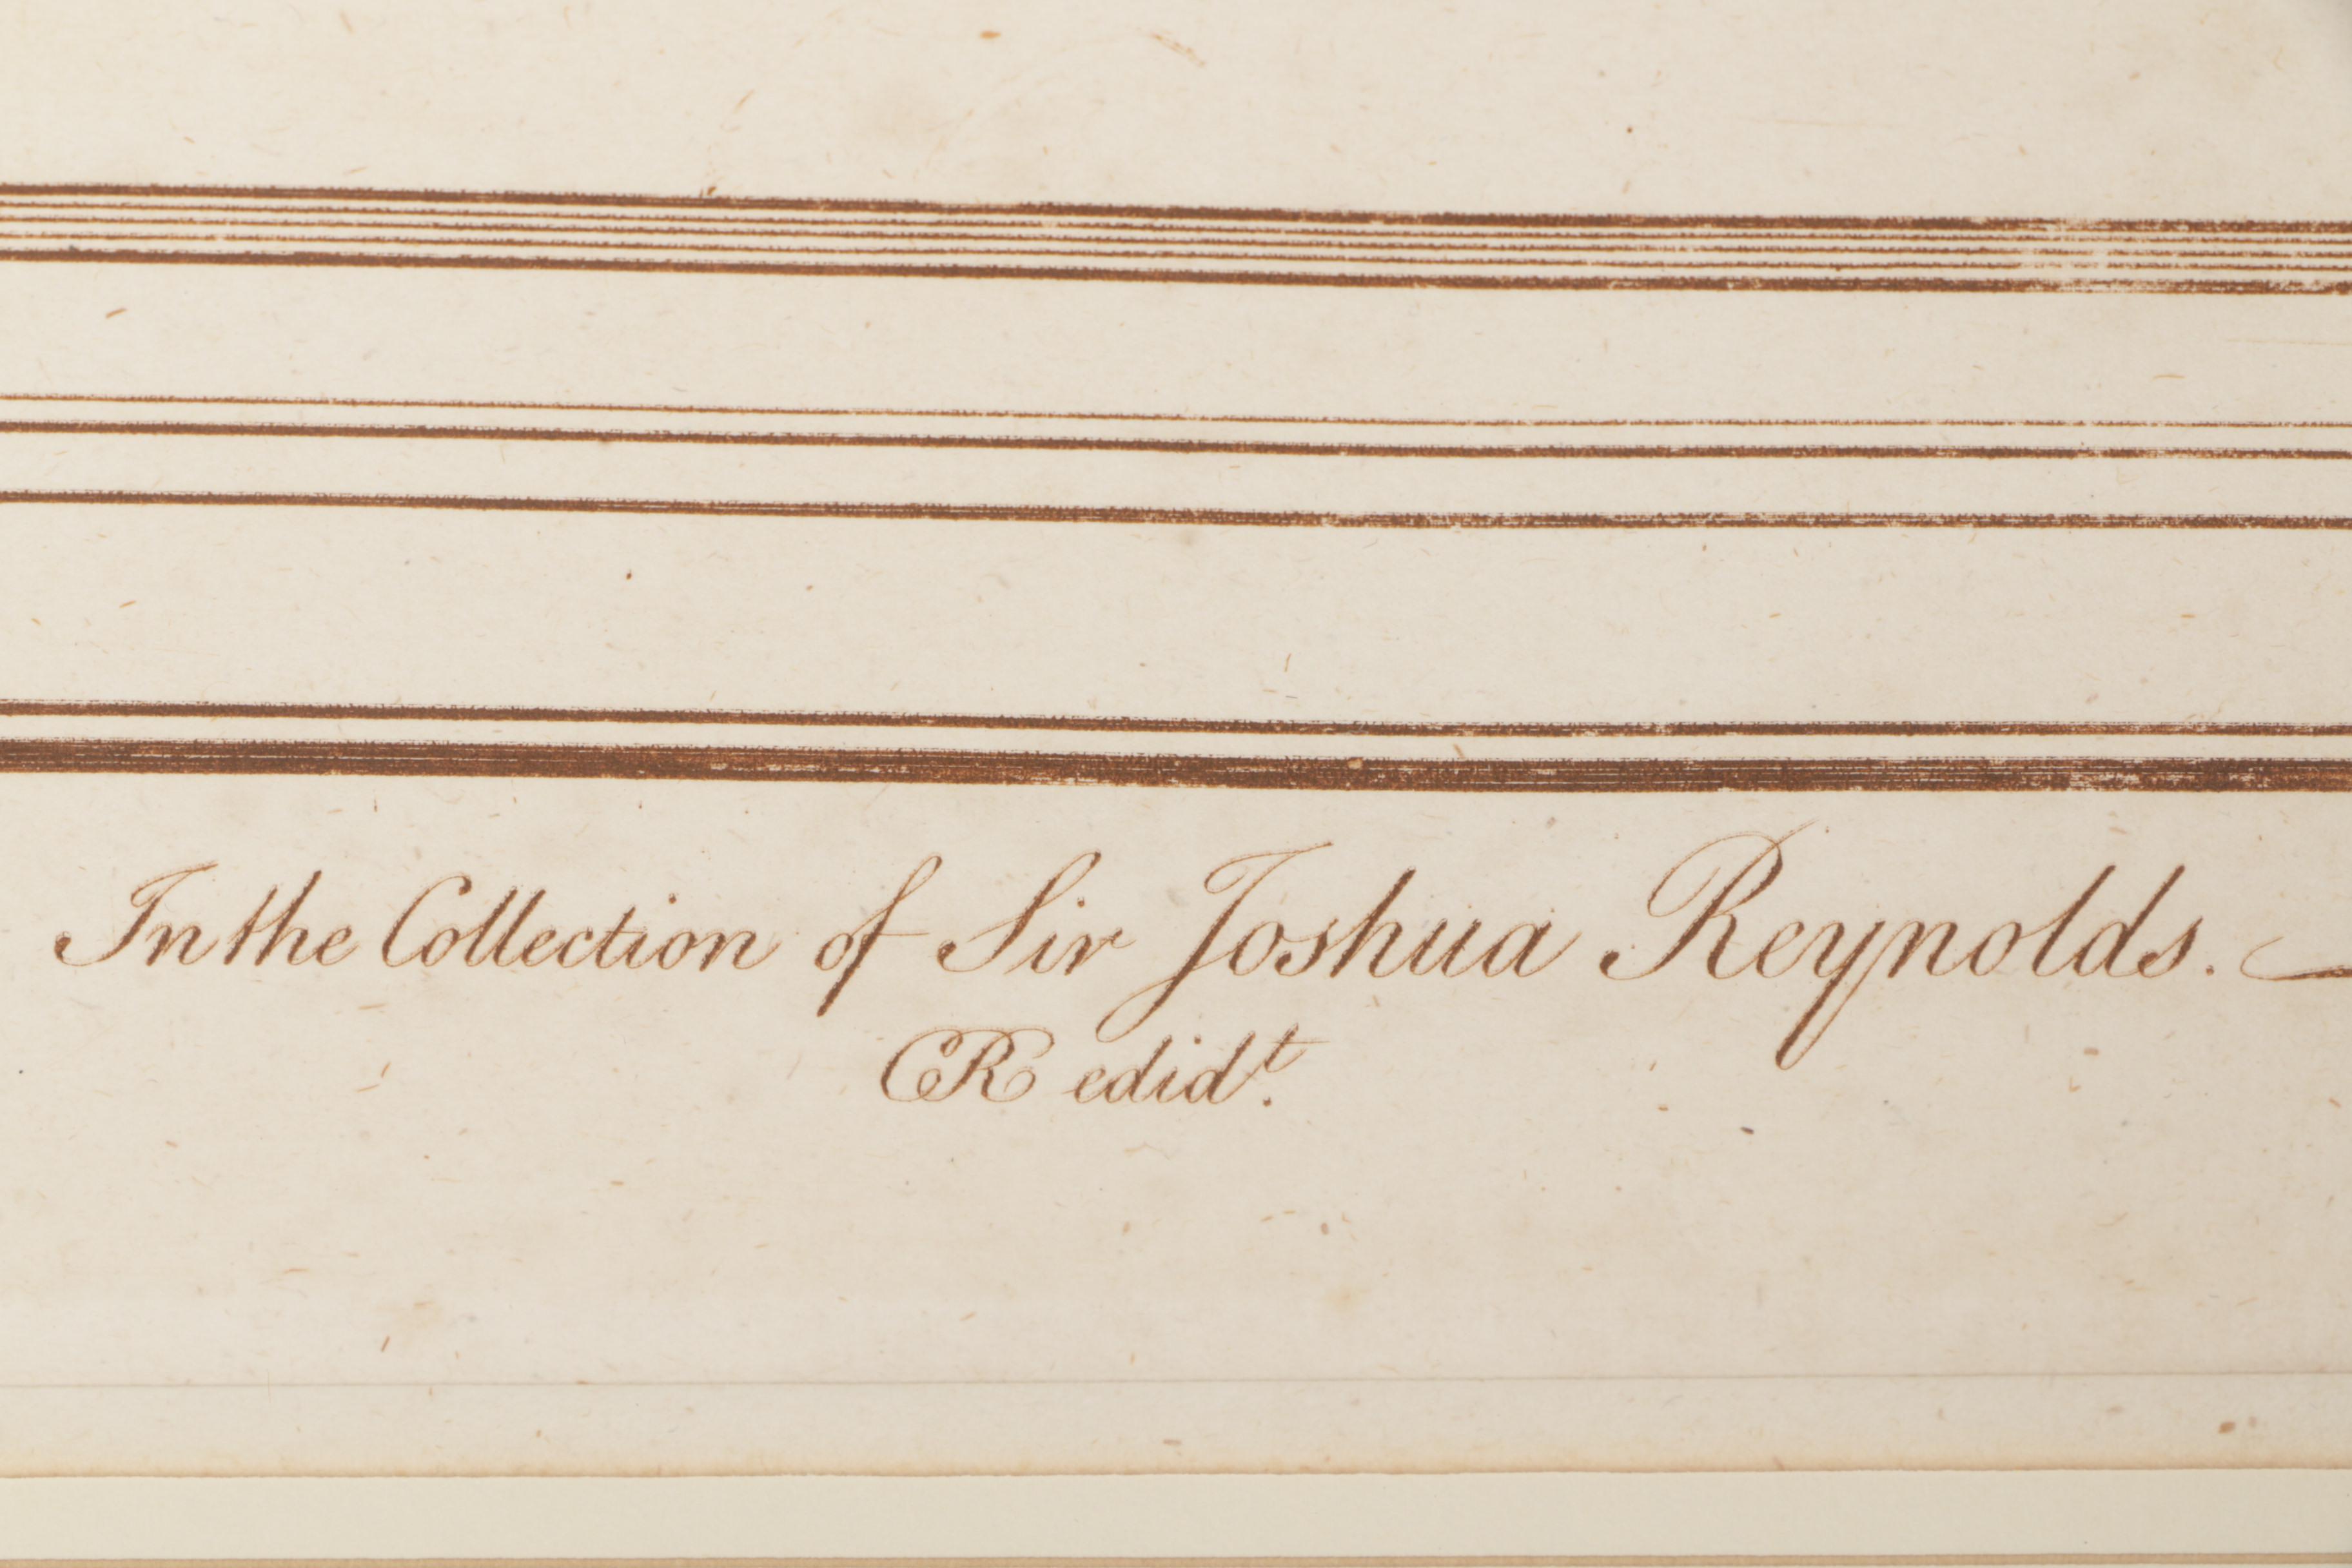 In the Collection of Sir Joshua Reynolds.
CR edidt.